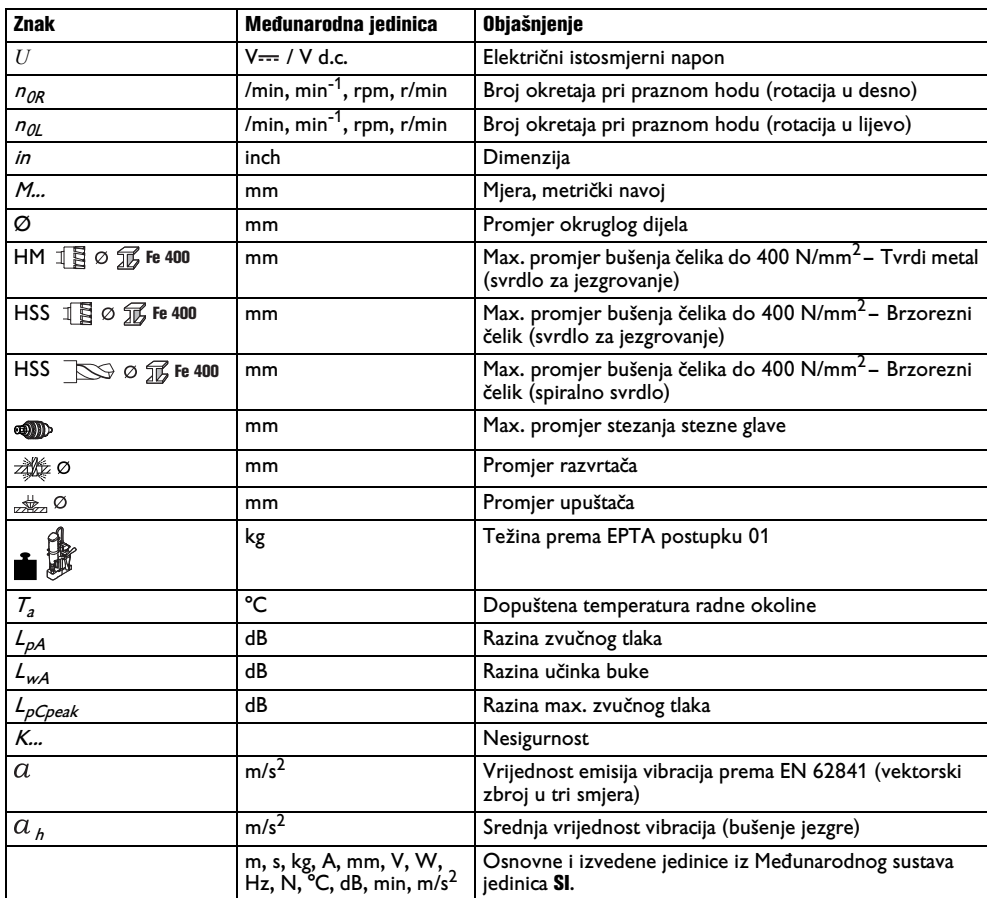 Znak Međunarodna jedinica Objašnjenje
U V⎓ / V d.c. Električni istosmjerni napon
n0R /min, min-1, rpm, r/min Broj okretaja pri praznom hodu (rotacija u desno)
n0L /min, min-1, rpm, r/min Broj okretaja pri praznom hodu (rotacija u lijevo)
in inch Dimenzija
M... mm Mjera, metrički navoj
Ø mm Promjer okruglog dijela
HM Ø Fe 400 mm Max. promjer bušenja čelika do 400 N/mm2 – Tvrdi metal
(svrdlo za jezgrovanje)
HSS Ø Fe 400 mm Max. promjer bušenja čelika do 400 N/mm2 – Brzorezni
čelik (svrdlo za jezgrovanje)
HSS Ø Fe 400 mm Max. promjer bušenja čelika do 400 N/mm2 – Brzorezni
čelik (spiralno svrdlo)
mm Max. promjer stezanja stezne glave
Ø mm Promjer razvrtača
Ø mm Promjer upuštača
kg Težina prema EPTA postupku 01
Ta °C Dopuštena temperatura radne okoline
LpA dB Razina zvučnog tlaka
LwA dB Razina učinka buke
LpCpeak dB Razina max. zvučnog tlaka
K... Nesigurnost
a m/s2 Vrijednost emisija vibracija prema EN 62841 (vektorski
zbroj u tri smjera)
ah m/s2 Srednja vrijednost vibracija (bušenje jezgre)
m, s, kg, A, mm, V, W, Osnovne i izvedene jedinice iz Međunarodnog sustava
Hz, N, °C, dB, min, m/s2 jedinica SI.